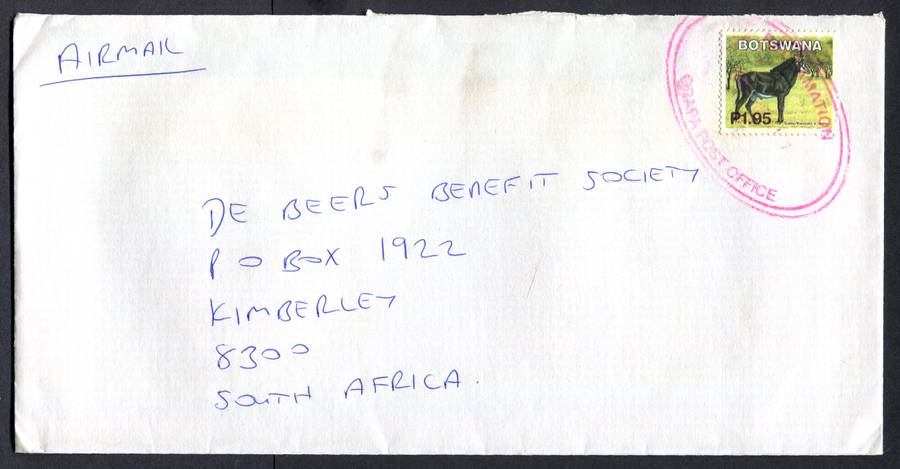 AIRMAIL
BOTSWANA
P1.95
POST OFFICE
DE BEERS BENEFIT SOCIETY
P O BOX 1922
KIMBERLEY
8300
SOUTH AFRICA.